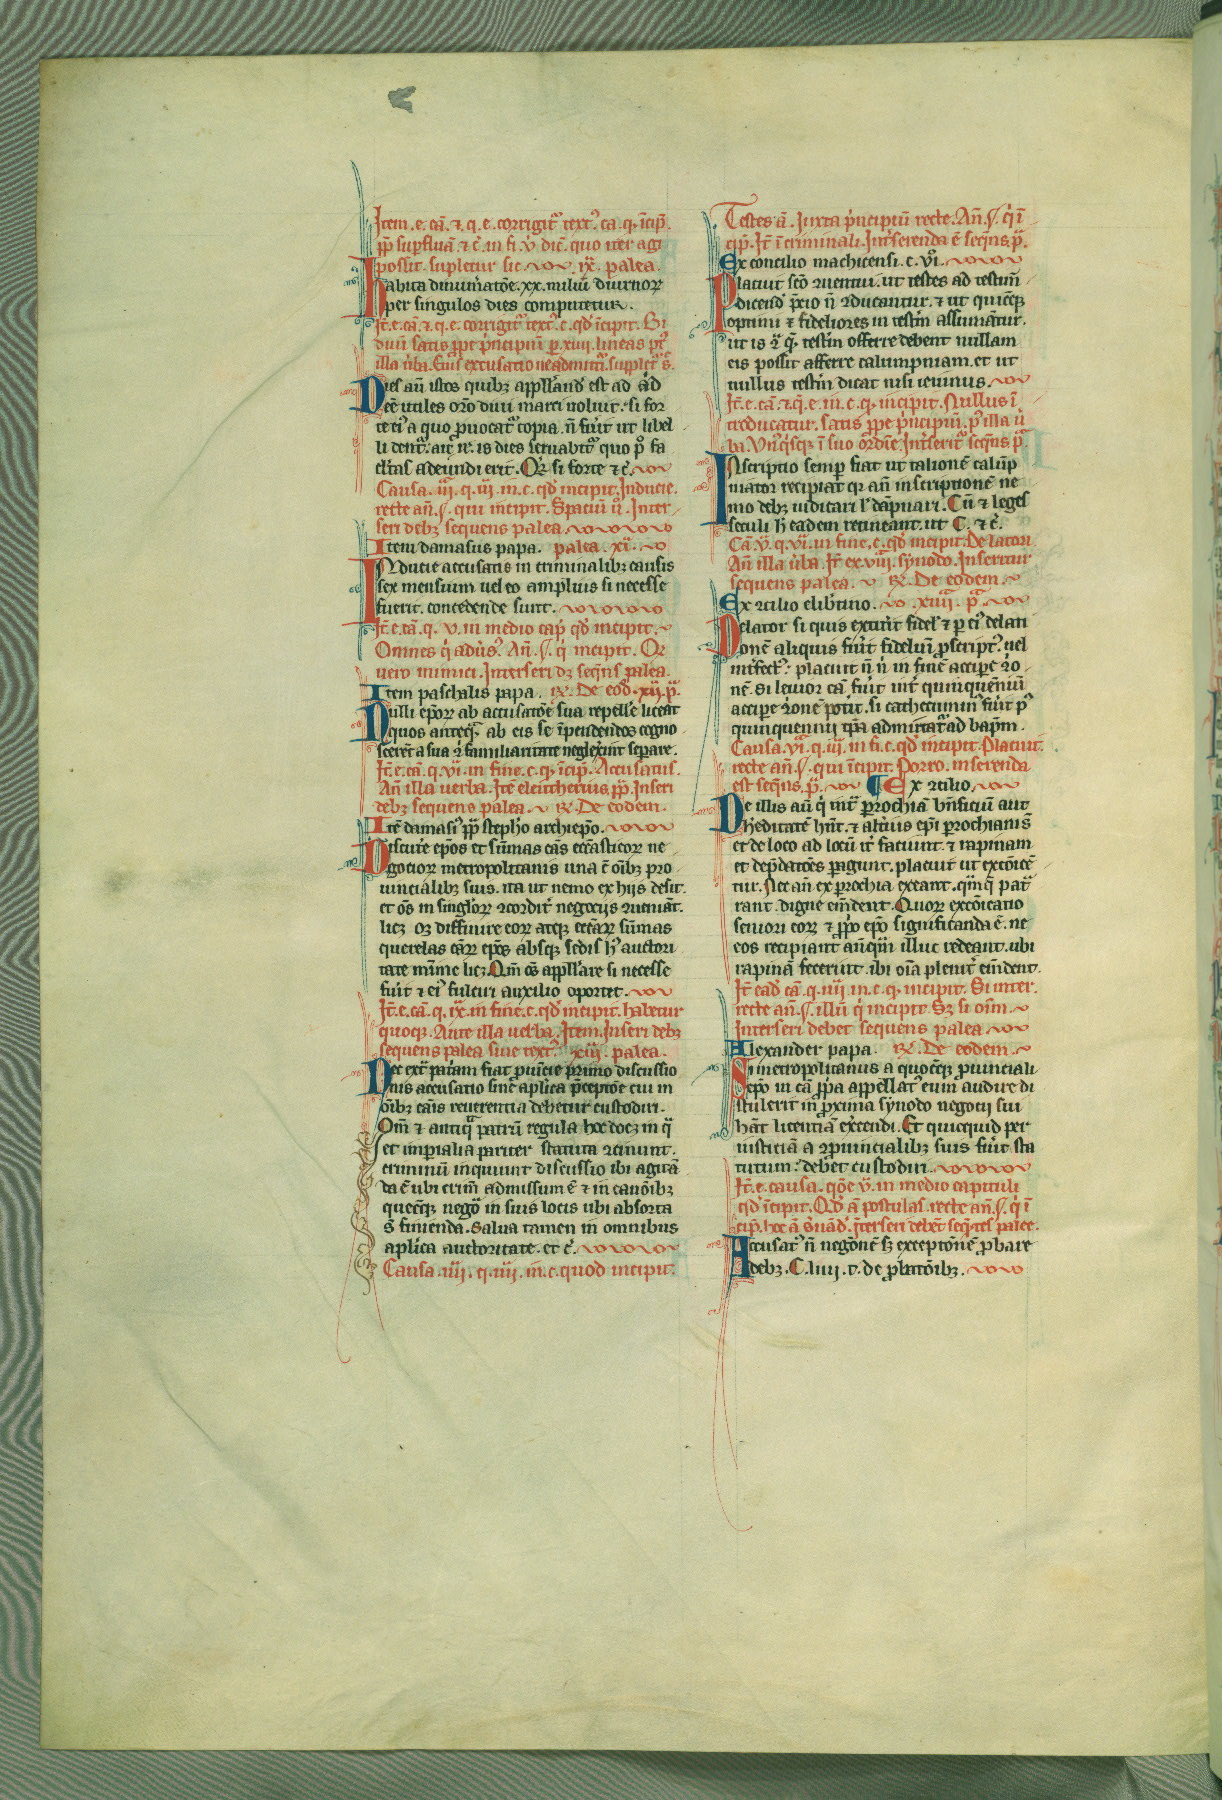 Item .e. cã. ⁊ q. e. corrigit᷑ text᷒. ca. q. ĩcip̃.
p̃p̃ suꝑfluã ⁊ c̃. in fi. v̉. dic̃. quo iter agi
possit. supletur sic. ix. palea.
habita dinum̃atõe .xx. miliũ diurnoꝝ
per singulos dies computetur.
It̃. e. cã. ⁊ q. e. corrigit᷑ text᷒. c. qd̉ ĩcipit. Si
diuũ satis ꝓpe p̉ncipiũ ꝑ xiiij. lineas p᷒t
illa ũba. Eius excusatio ne admitt᷑. suplet᷑ s̃.
Dies aũ istos quibꝫ appllãnd̉ est ad
utiles orõ diui marci uoluit. si for
te ei᷒ a quo ꝓuocat᷑ copia. ñ fuit ut libel
li dent᷑. ait. is dies seruabit᷑ quo p᷒ fa
cl̃tas adeundi erit. Q̉ si forte ⁊ c̃.
Causa. iii. q. iii. in. c. qd̉ incipit. Inducie.
recte añ. §. qui incipit. Spaciũ ũ. Inter-
seri debꝫ sequens palea.
Item damasus papa. palea. xi.
Inducie accusatis in criminalibꝫ causis
sex mensium uel eo amplius si necesse
fuerit. concedende sunt.
It̃. e. cã. q. v. in medio cap̃. qd̉ incipit.
Omnes q̉ adũs᷒. Añ. §. q̉ incipit. Qꝛ
uero inimici. Interseri dꝫ seq̃ns palea.
Item paschalis papa. R̃. De eod̃. xii. p̃.
Nulli ep̃oꝝ ab accusatõe sua repelle liceat
quos anteq̃ ab eis se ĩpetendos cogno
scerẽt a sua ⁊ familiaritate neglex̃int separe.
It̃. e. cã. q. vi. in fine. c. q. ĩcip̃. Accusatus.
Añ illa uerba. Itẽ eleutherius p̃p̃. Inseri
debꝫ sequens palea. R̃. De eodem.
Itẽ damas᷒ p̃p̃ steph̃o archiep̃o.
Discut̃e ep̃os et sũmas cãs ecc̃asticoꝝ ne
gocioꝝ metropolitanis una c̃ oĩbꝫ pro
uincialibꝫ suis. ita ut nemo ex hijs desit.
et om̃s in singl̃oꝝ ꝯcordit᷑ negocijs ꝯueniãt.
licꝫ. Sꝫ diffinire eoꝝ atqꝫ ecc̃aꝝ sũmas
querelas cãꝝ ep̃os absqꝫ sedis h᷒ auctori
tate mĩme licꝫ. Qm̃ om̃s appll̃are si necesse
fũit ⁊ ei᷒ fulciri auxilio oportet.
It̃. e. cã. q. ix. in fine. c. qd̉ incipit. habetur
quoqꝫ. Ante illa uerba. Item. Inseri debꝫ
sequens palea siue text᷒. xiii. palea.
Nec ext̃ p̃riam fiat ꝓuĩcie primo discussio
nis accusatio sine aplica p̃ceptõe cui in
oĩbꝫ cãis reuerentia debetur custodiri.
Qm̃ ⁊ antiq̃ patrũ regula hoc docꝫ in q̃
et imꝑialia pariter statuta ꝯcinunt.
criminũ inquiunt discussio ibi agitã
da ẽ ubi crim̃ admissum ẽ ⁊ in canõibꝫ
quecũqꝫ nego᷒ in suis locis ubi absorta
s̃ finienda. Salua tamen in omnibus
aplica auctoritate. et c̃.
Causa. iiii. q. iiii. in. c. quod incipit.
Testes ã. Iuxta p̉ncipiũ recte. Añ. §. q̉ ĩ
cip̃. It̃ ĩ criminali. Int̉serenda ẽ seq̃ns p̃.
Ex concilio machicensi. c. vi᷒.
Placuit sc̃o ꝯuentui. ut testes ad testim̃
dicend̉ p̃cio ñ ꝯducantur. ⁊ ut quicũqꝫ
optimi ⁊ fideliores in testim̃ assumãtur.
ut is ꝯ̃ q̃ testim̃ offerre debent nullam
eis possit afferre calumpniam. et ut
nullus testim̃ dicat nisi ieiunus.
It̃. e. cã. ⁊ q. e. in. c. q. incipit. Nullus ĩ
troducatur. satis ꝓpe p̉ncipiũ. p᷒ illa ũ
ba. Vn᷒q᷒sqꝫ ĩ suo ordine. Int̉serit᷑ seq̃ns p̃.
Inscriptio semꝑ fiat ut talionẽ calũp
niator recipiat qꝛ añ inscriptionẽ ne
mo debꝫ iudicari l̃ dãpnari. Cũ ⁊ leges
seculi h̃ eadem retineant. ut C. ⁊ c̃.
Cã. v. q. vi. in fine. c. qd̉ incipit. Delatori
Añ illa ũba. It̃ ex viii. synodo. Inseritur
sequens palea. R̃. De eodem.
Ex ꝯcilio elib̃tino. xiiii. p̃.
Delator si quis extit̃it fidel̃ ⁊ ꝑ ei᷒ delati
onẽ aliquis fũit fideliũ ꝓscript᷒. uel
int̃fect᷒. placuit ñ ũ in finẽ accipe ꝯo
nẽ. Si leuior cã fũit int̃ quinquẽniũ
accipe ꝯonẽ pot̃it. si cathecumin᷒ fũit p᷒
quinquennii tp̃a admittat᷑ ad bap̃m.
Causa. vi. q. iii. in fi. c. qd̉ incipit. Placuit.
recte añ. §. qui ĩcipit. Porro. inserenda
est seq̃ns. p̃. ¶ Ex ꝯcilio.
De illis aũ q̉ int̃ ꝑrochiã b̃nficiũ aut
h̉editatẽ hñt. ⁊ alt̃ius ep̃i ꝑrochianis
et de loco ad locũ it̃ faciunt. ⁊ rapinam
et dep̃datões ꝑagunt. placuit ut excõicẽ
tur. Nec añ ex ꝑrochia exeant. q̃ que pat᷑
rant. digne em̃dent. Quoꝝ excõicatio
seniori eoꝝ ⁊ ꝓpo ep̃o significanda ẽ. ne
eos recipiant añq̃ illuc redeant. ubi
rapinã fecerint. ibi oĩa plenit᷑ em̃dent.
It̃ ead̉ cã. q. iiii. in. c. q. incipit. Si inter.
recte añ. §. illũ q̉ incipit. Sꝫ si om̃.
Interseri debet sequens palea.
Alexander papa. R̃. De eodem.
Si metropolitanus a quocũqꝫ ꝓuinciali
ep̃o in cã ꝓpa appellat᷑ eum audire di
stulerit in ꝓxima synodo negocii sui
hãt licentiã exercendi. Et quicquid per
iusticiã a ꝯꝓuincialibꝫ suis fũit sta
tutum debet custodiri.
It̃. e. causa. qõe v. in medio capituli
qd̉ ĩcipit. Qd̉ ã postulas. recte añ. §. q̉ ĩ
cip̃. hoc ã s̃uãd̉. Int̉seri debẽt seq̃ntes palee.
Accusat᷒ ñ negõnẽ sꝫ exceptõnẽ ꝓbare
debꝫ. C. liiii. t. de ꝓbatõibꝫ.